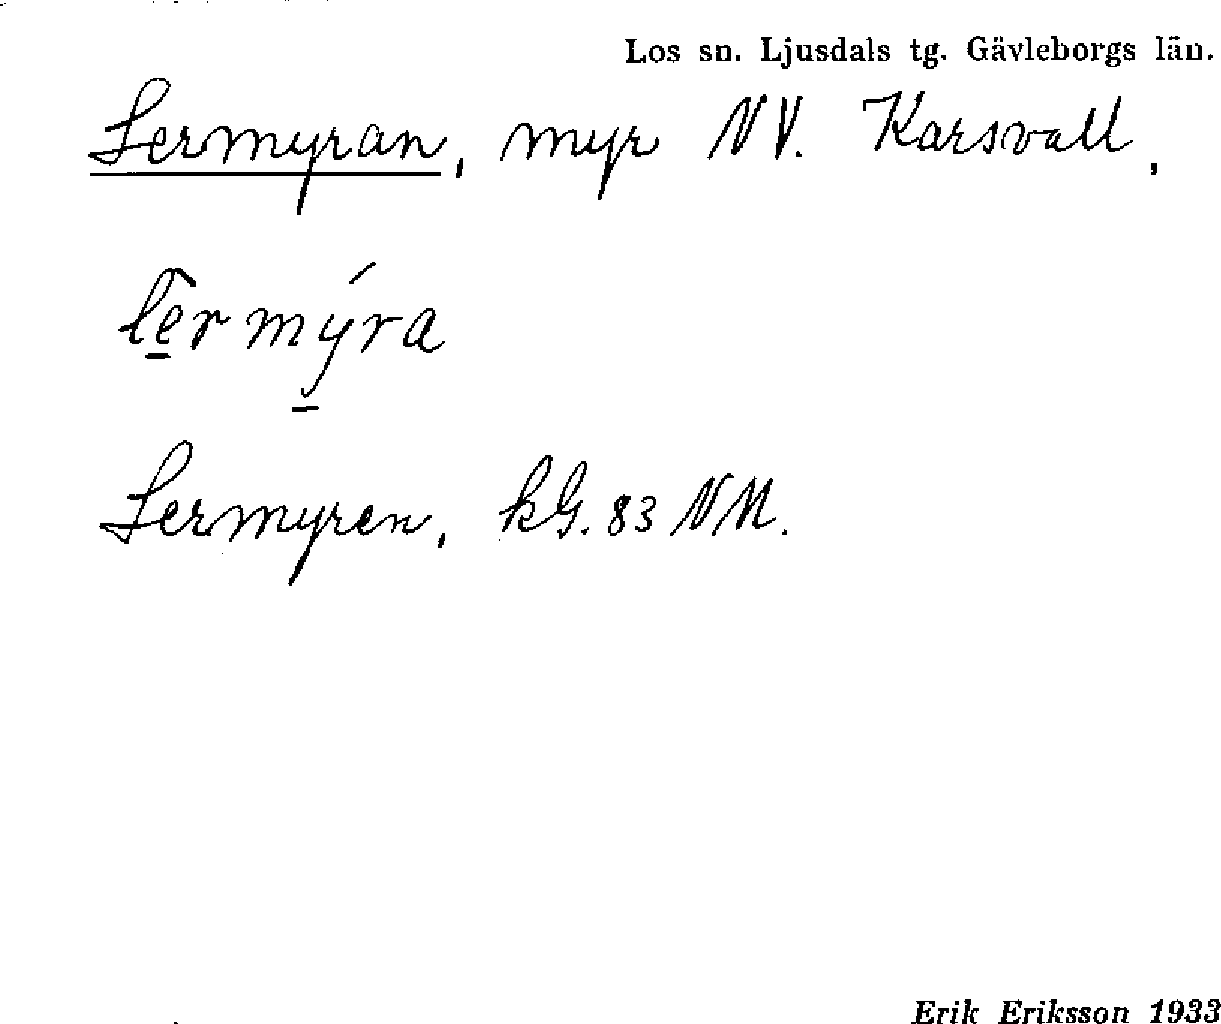 Los sn. Ljusdals tg. Gävleborgs län.
Lermyran, myr NV. Karsvall,
lẽrmýra
Lermyren, kG. 83 NM.
Erik Eriksson 1933